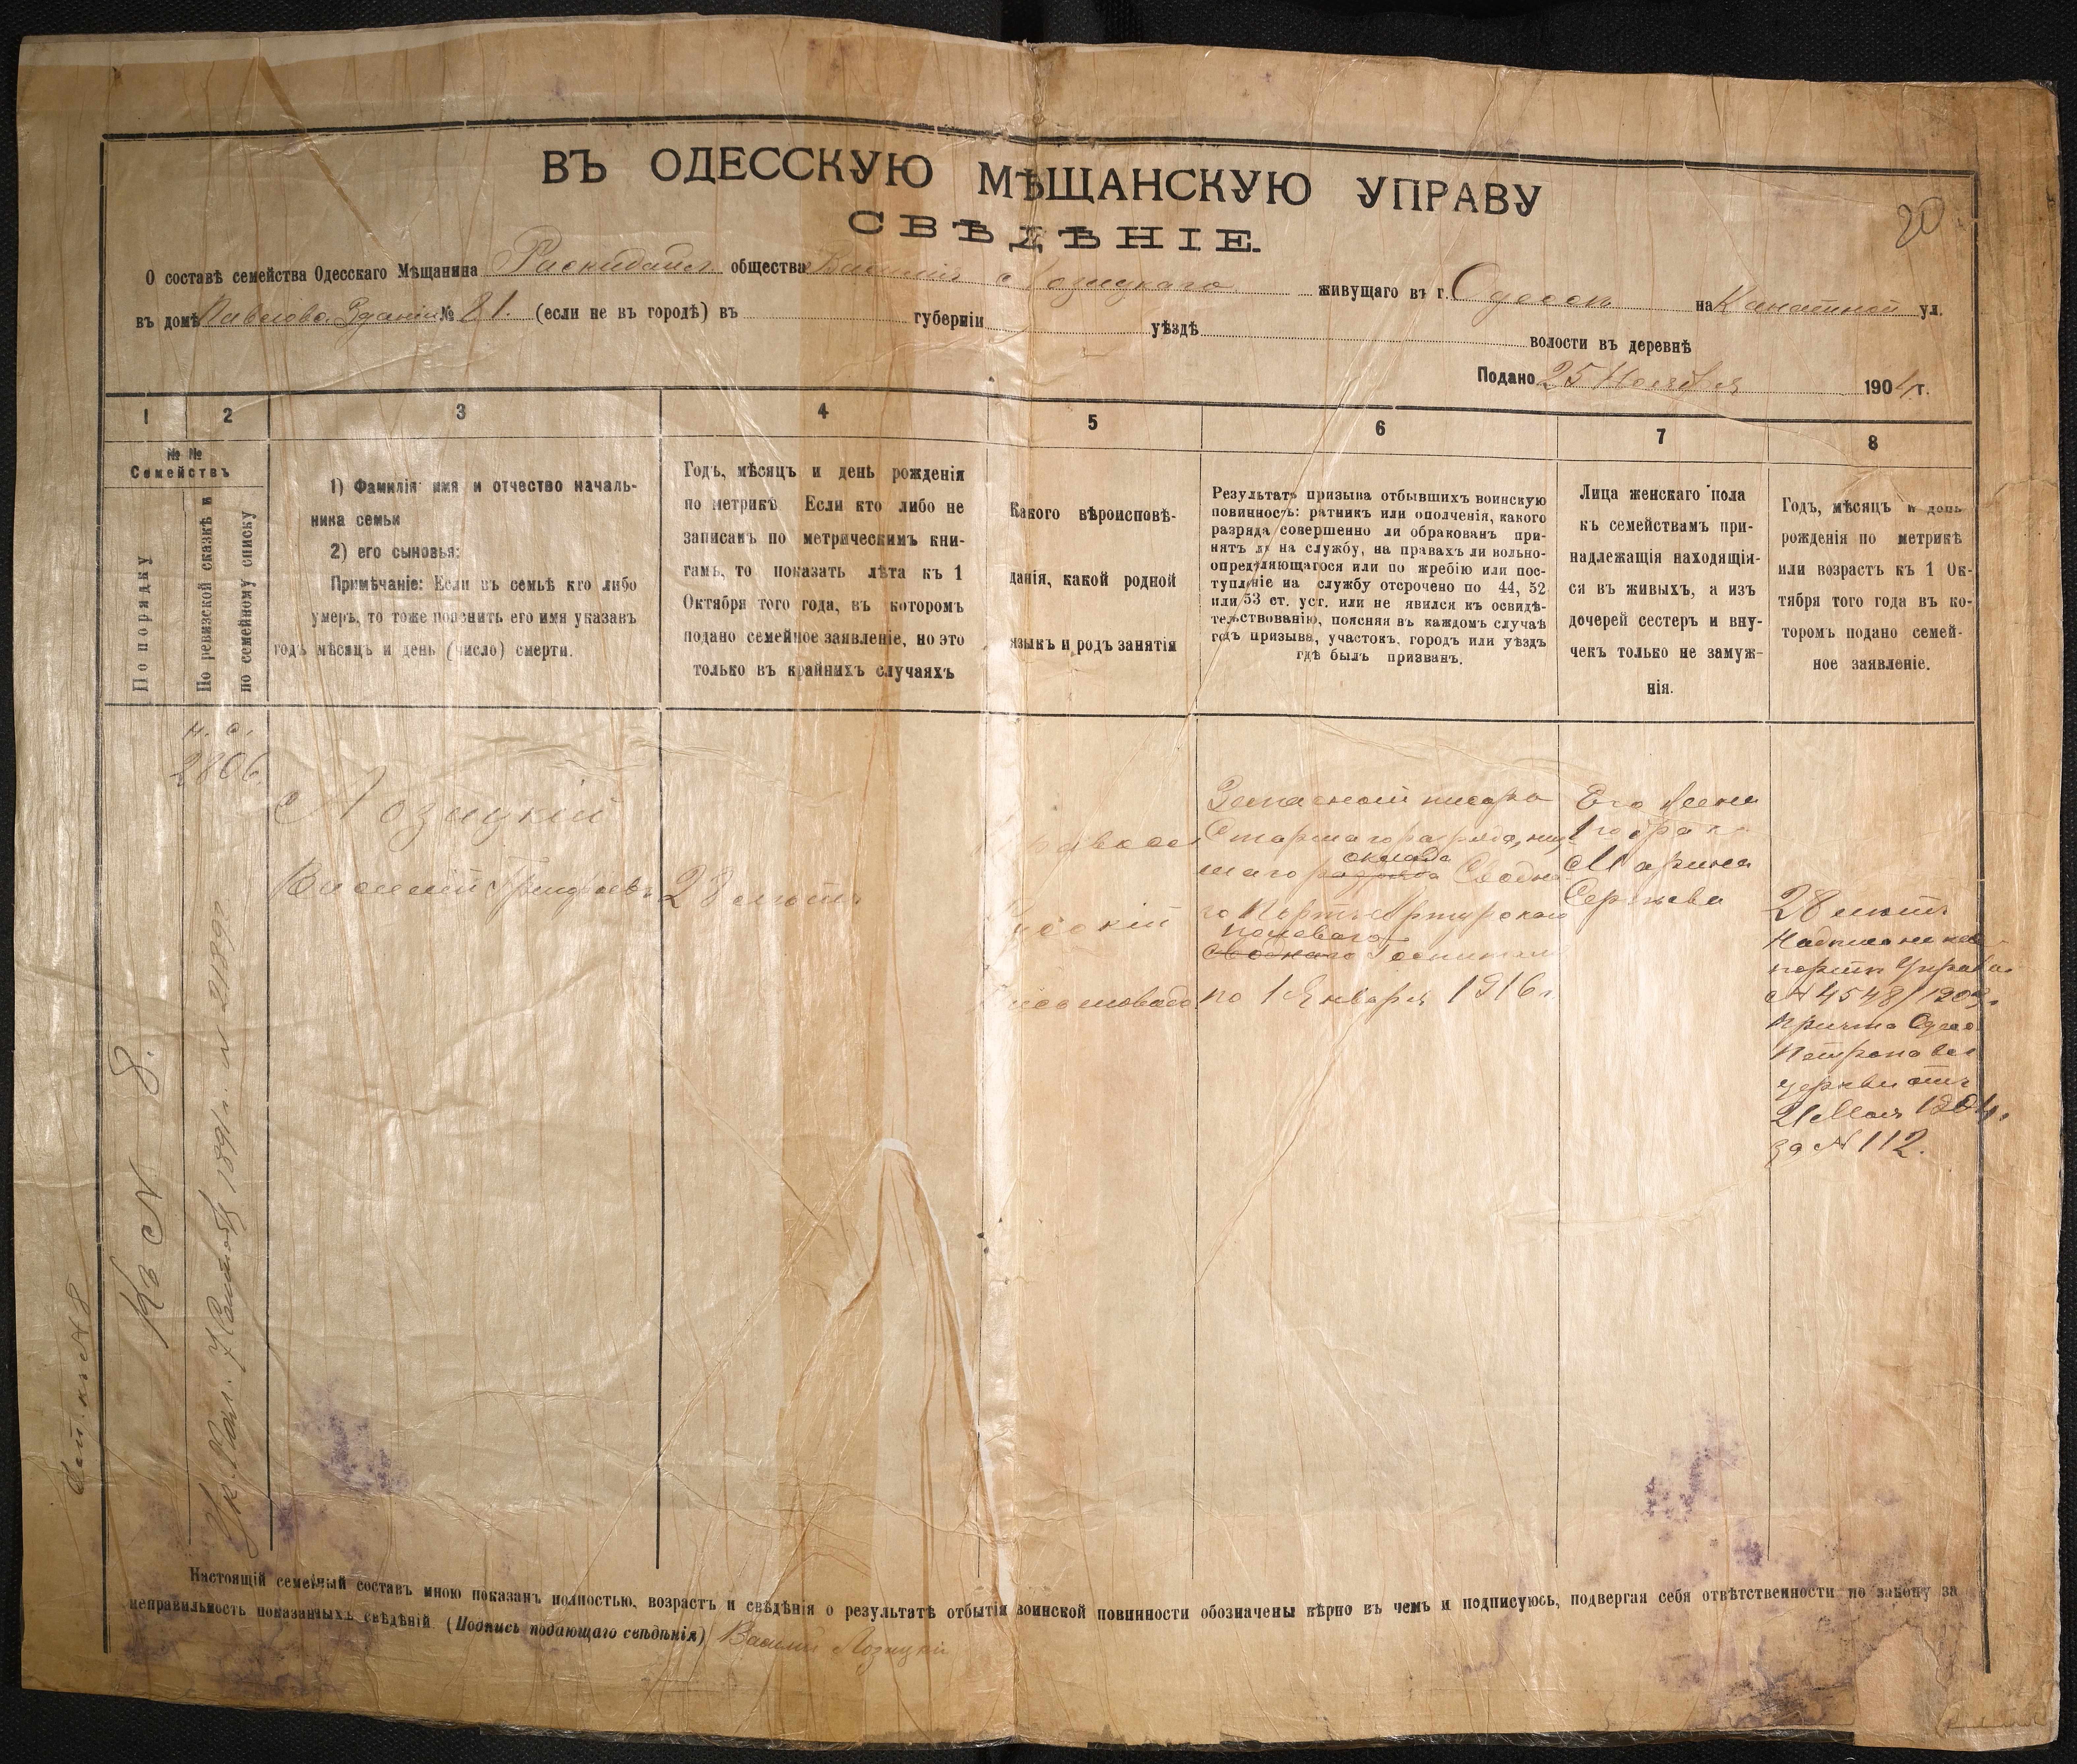 ВЪ ОДЕССКУЮ МѢЩАНСКУЮ УПРАВУ
СВѢДѢНІЕ.
20
О составѣ семейства Одесскаго Мѣщанина Раскидайл. общества Василія Лозицкаго живущаго въ г. Одессѣ на Канатной ул.
въ домѣ Павлова. Зданіи № 81. (если не въ городѣ) въ губерніи уѣздѣ волости въ деревнѣ
Подано 25 Ноября 1904 г.
1
2
3
4
5
6
7
8
№ №
Семействъ
По порядку
По ревизской сказкѣ и
по семейному списку
1) Фамилія имя и отчество началь-
ника семьи
2) его сыновья:
Примѣчаніе: Если въ семьѣ кто либо
умеръ, то тоже пояснить его имя указавъ
годъ мѣсяцъ и день (число) смерти.
Годъ, мѣсяцъ и день рожденія
по метрикѣ Если кто либо не
записанъ по метрическимъ кни-
гамъ, то показать лѣта къ 1
Октября того года, въ которомъ
подано семейное заявленіе, но это
только въ крайнихъ случаяхъ
Какого вѣроисповѣ-
данія, какой родной
языкъ и родъ занятія
Результатъ призыва отбывшихъ воинскую
повинность: ратникъ или ополченія, какого
разряда совершенно ли обракованъ при-
нятъ ли на службу, на правахъ ли вольно-
опредѣляющагося или по жребію или пос-
тупленіе на службу отсрочено по 44, 52
или 53 ст. уст. или не явился къ освидѣ-
тельствованію, поясняя въ каждомъ случаѣ
годъ призыва, участокъ, городъ или уѣздъ
гдѣ былъ призванъ.
Лица женскаго пола
къ семействамъ при-
надлежащія находящія-
ся въ живыхъ, а изъ
дочерей сестеръ и вну-
чекъ только не замуж-
нія.
Годъ, мѣсяцъ и день
рожденія по метрикѣ
или возрастъ къ 1 Ок-
тября того года въ ко-
торомъ подано семей-
ное заявленіе.
н. с.
2806.
Лозицкій
Василій Григорьевъ
28 лѣтъ
Православ.
Русскій
Запасной писарь
Старшаго разряда, низ
шаго разряда оклада Сводна
го Портъ Артурскаго
полеваго
сводного Госпиталя
по 1 Января 1916 г.
Его жена
1го брака
Марина
Сергѣева
28 лѣтъ
Надпись на пас
портѣ Управы
№ 4548/1903 г.
Причта Одес.
церкви отъ
21 Мая 1904 г.
за № 112.
Къ № 8.
Ук. Пал. 7 1891 г. № 21892
къ № 8
Настоящій семейный составъ мною показанъ полностью, возрастъ и свѣдѣнія о результатѣ отбытія воинской повинности обозначены вѣрно въ чемъ и подписуюсь, подвергая себя отвѣтственности по закону за
неправильность показанныхъ свѣдѣній (Подпись подающаго свѣдѣнія) Василій Лозицкій